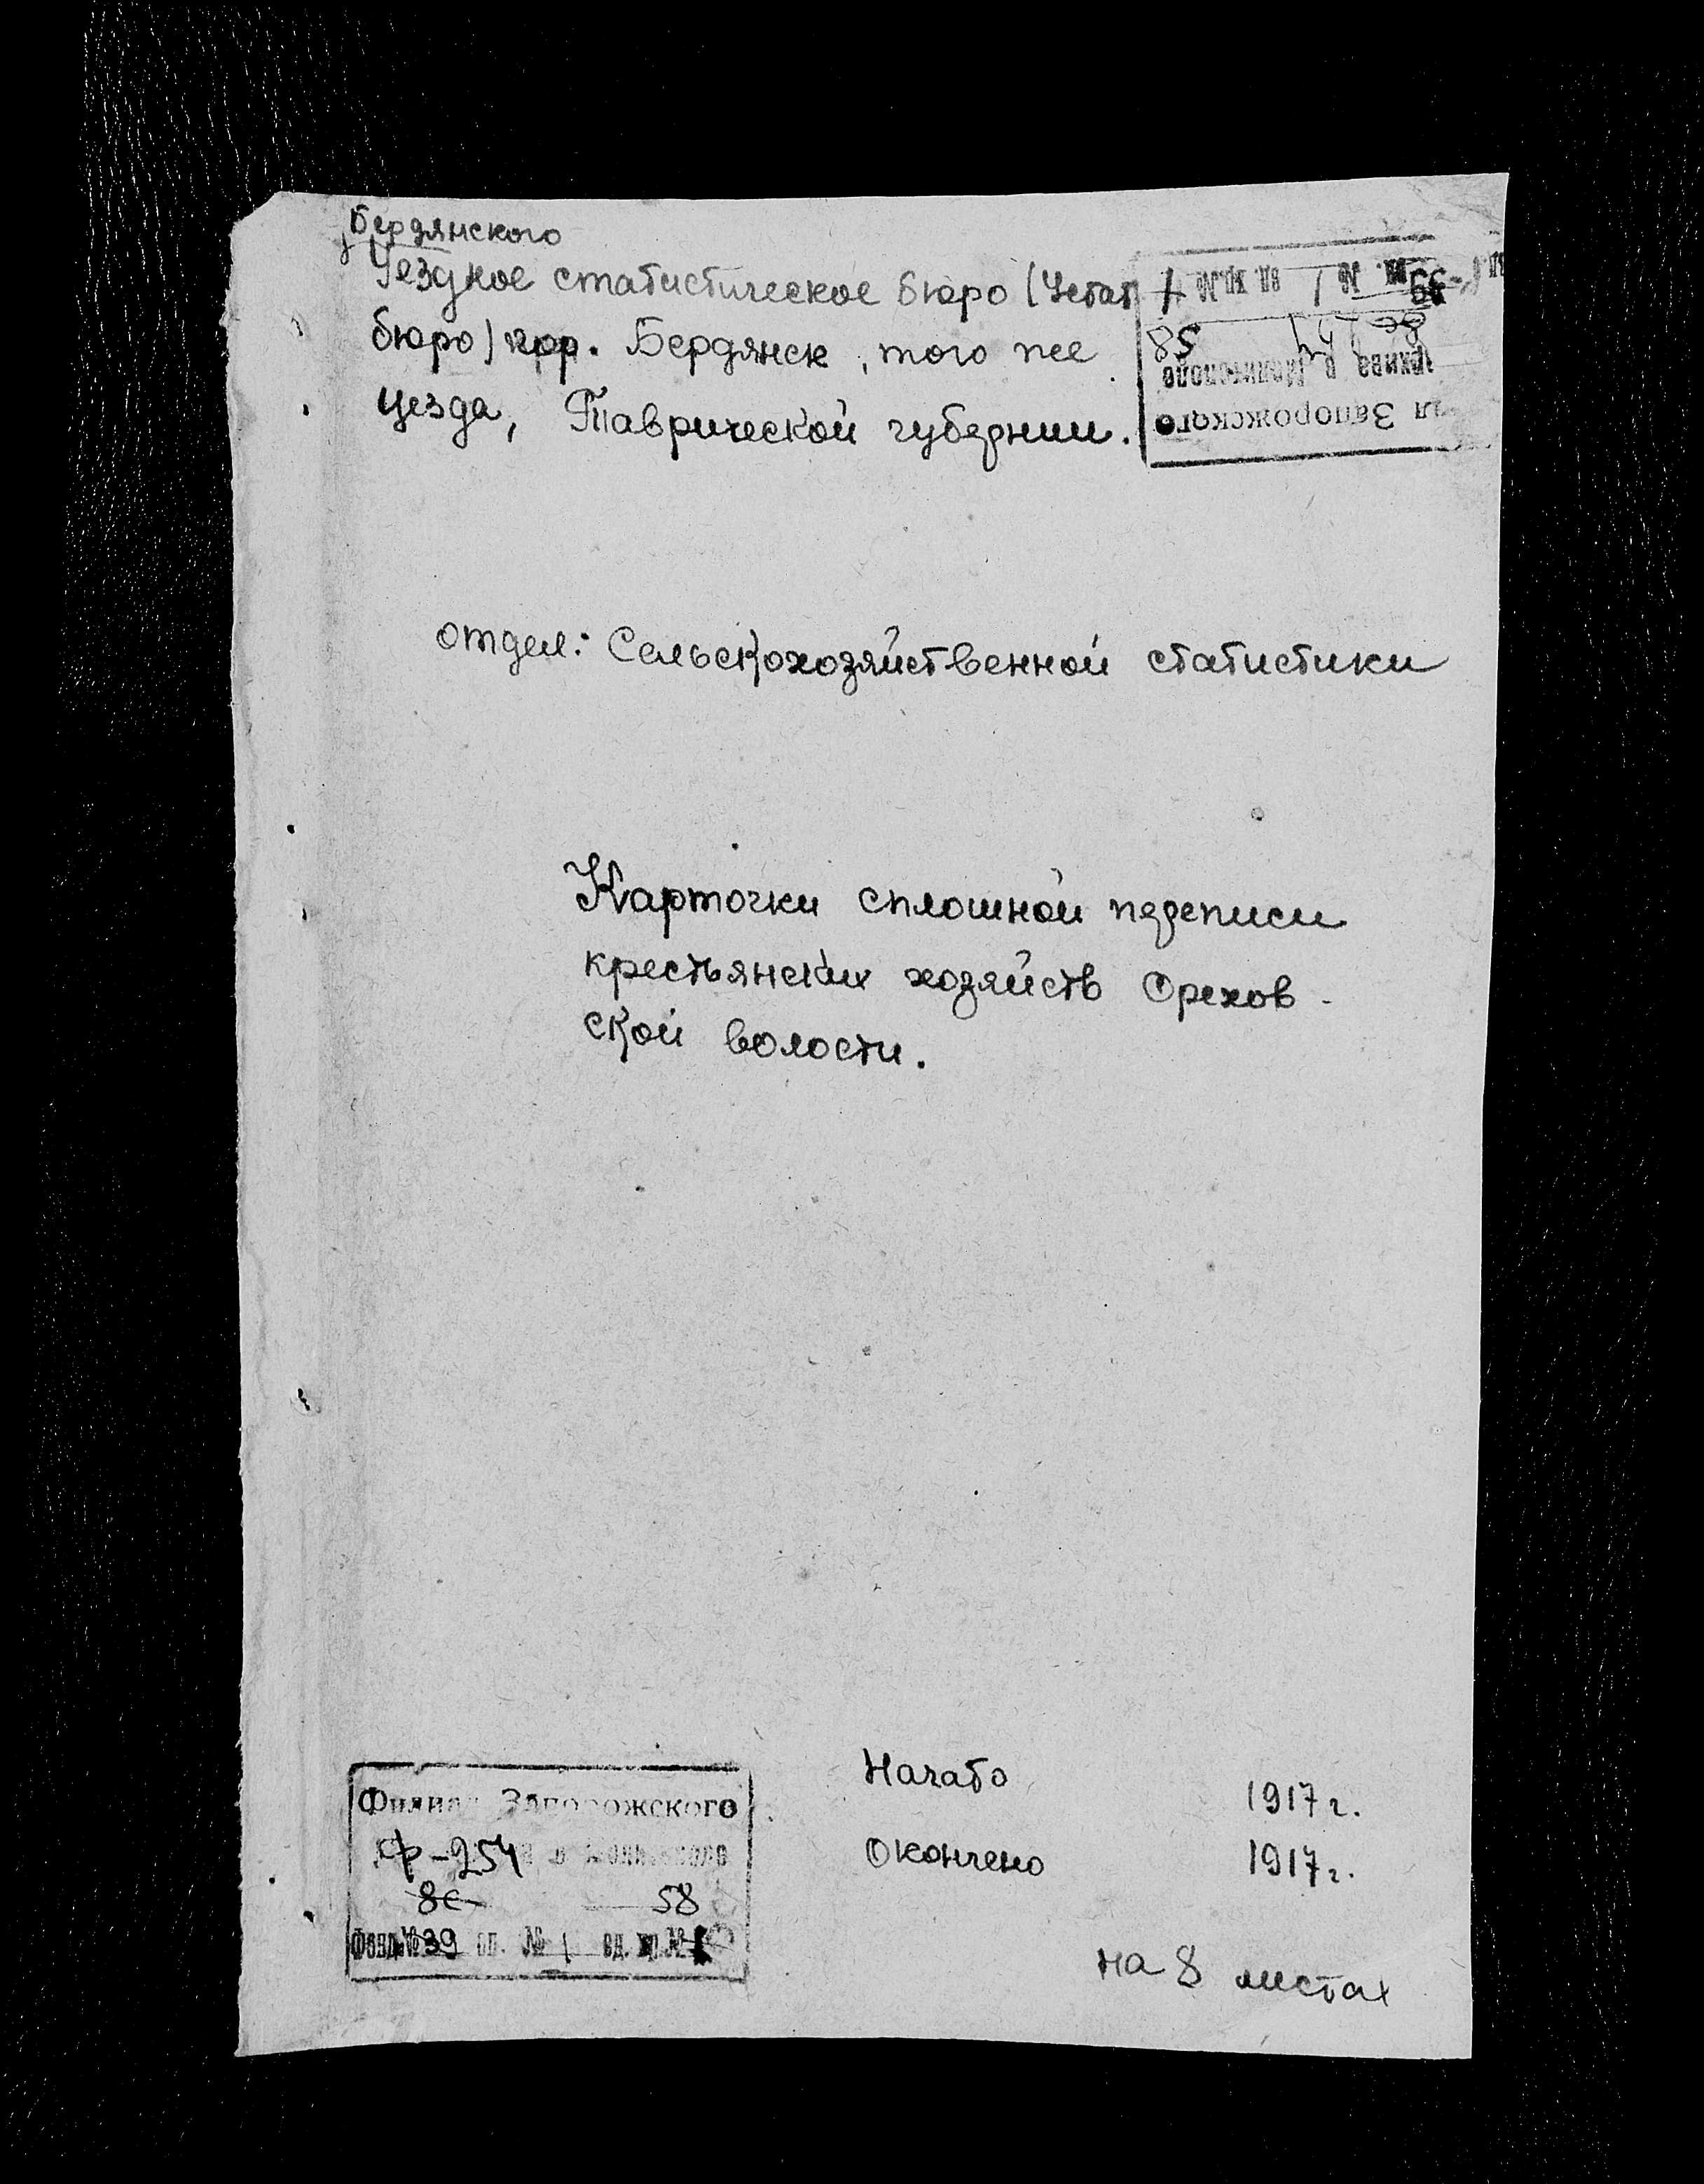 Бердянского
Уездное статистическое бюро (Устат
бюро) гор. Бердянск, того же
уезда, Таврической губернии.
Запорожского
58
отдел: Сельскохозяйственной статистики
Карточки сплошной переписи
крестьянских хозяйств Орехов-
ской волости.
Начато 1917 г.
Окончено 1917 г.
на 8 листах
Филиал Запорожского
ф-254
58
Фонд № 39 оп. № 1 ед. хр. №